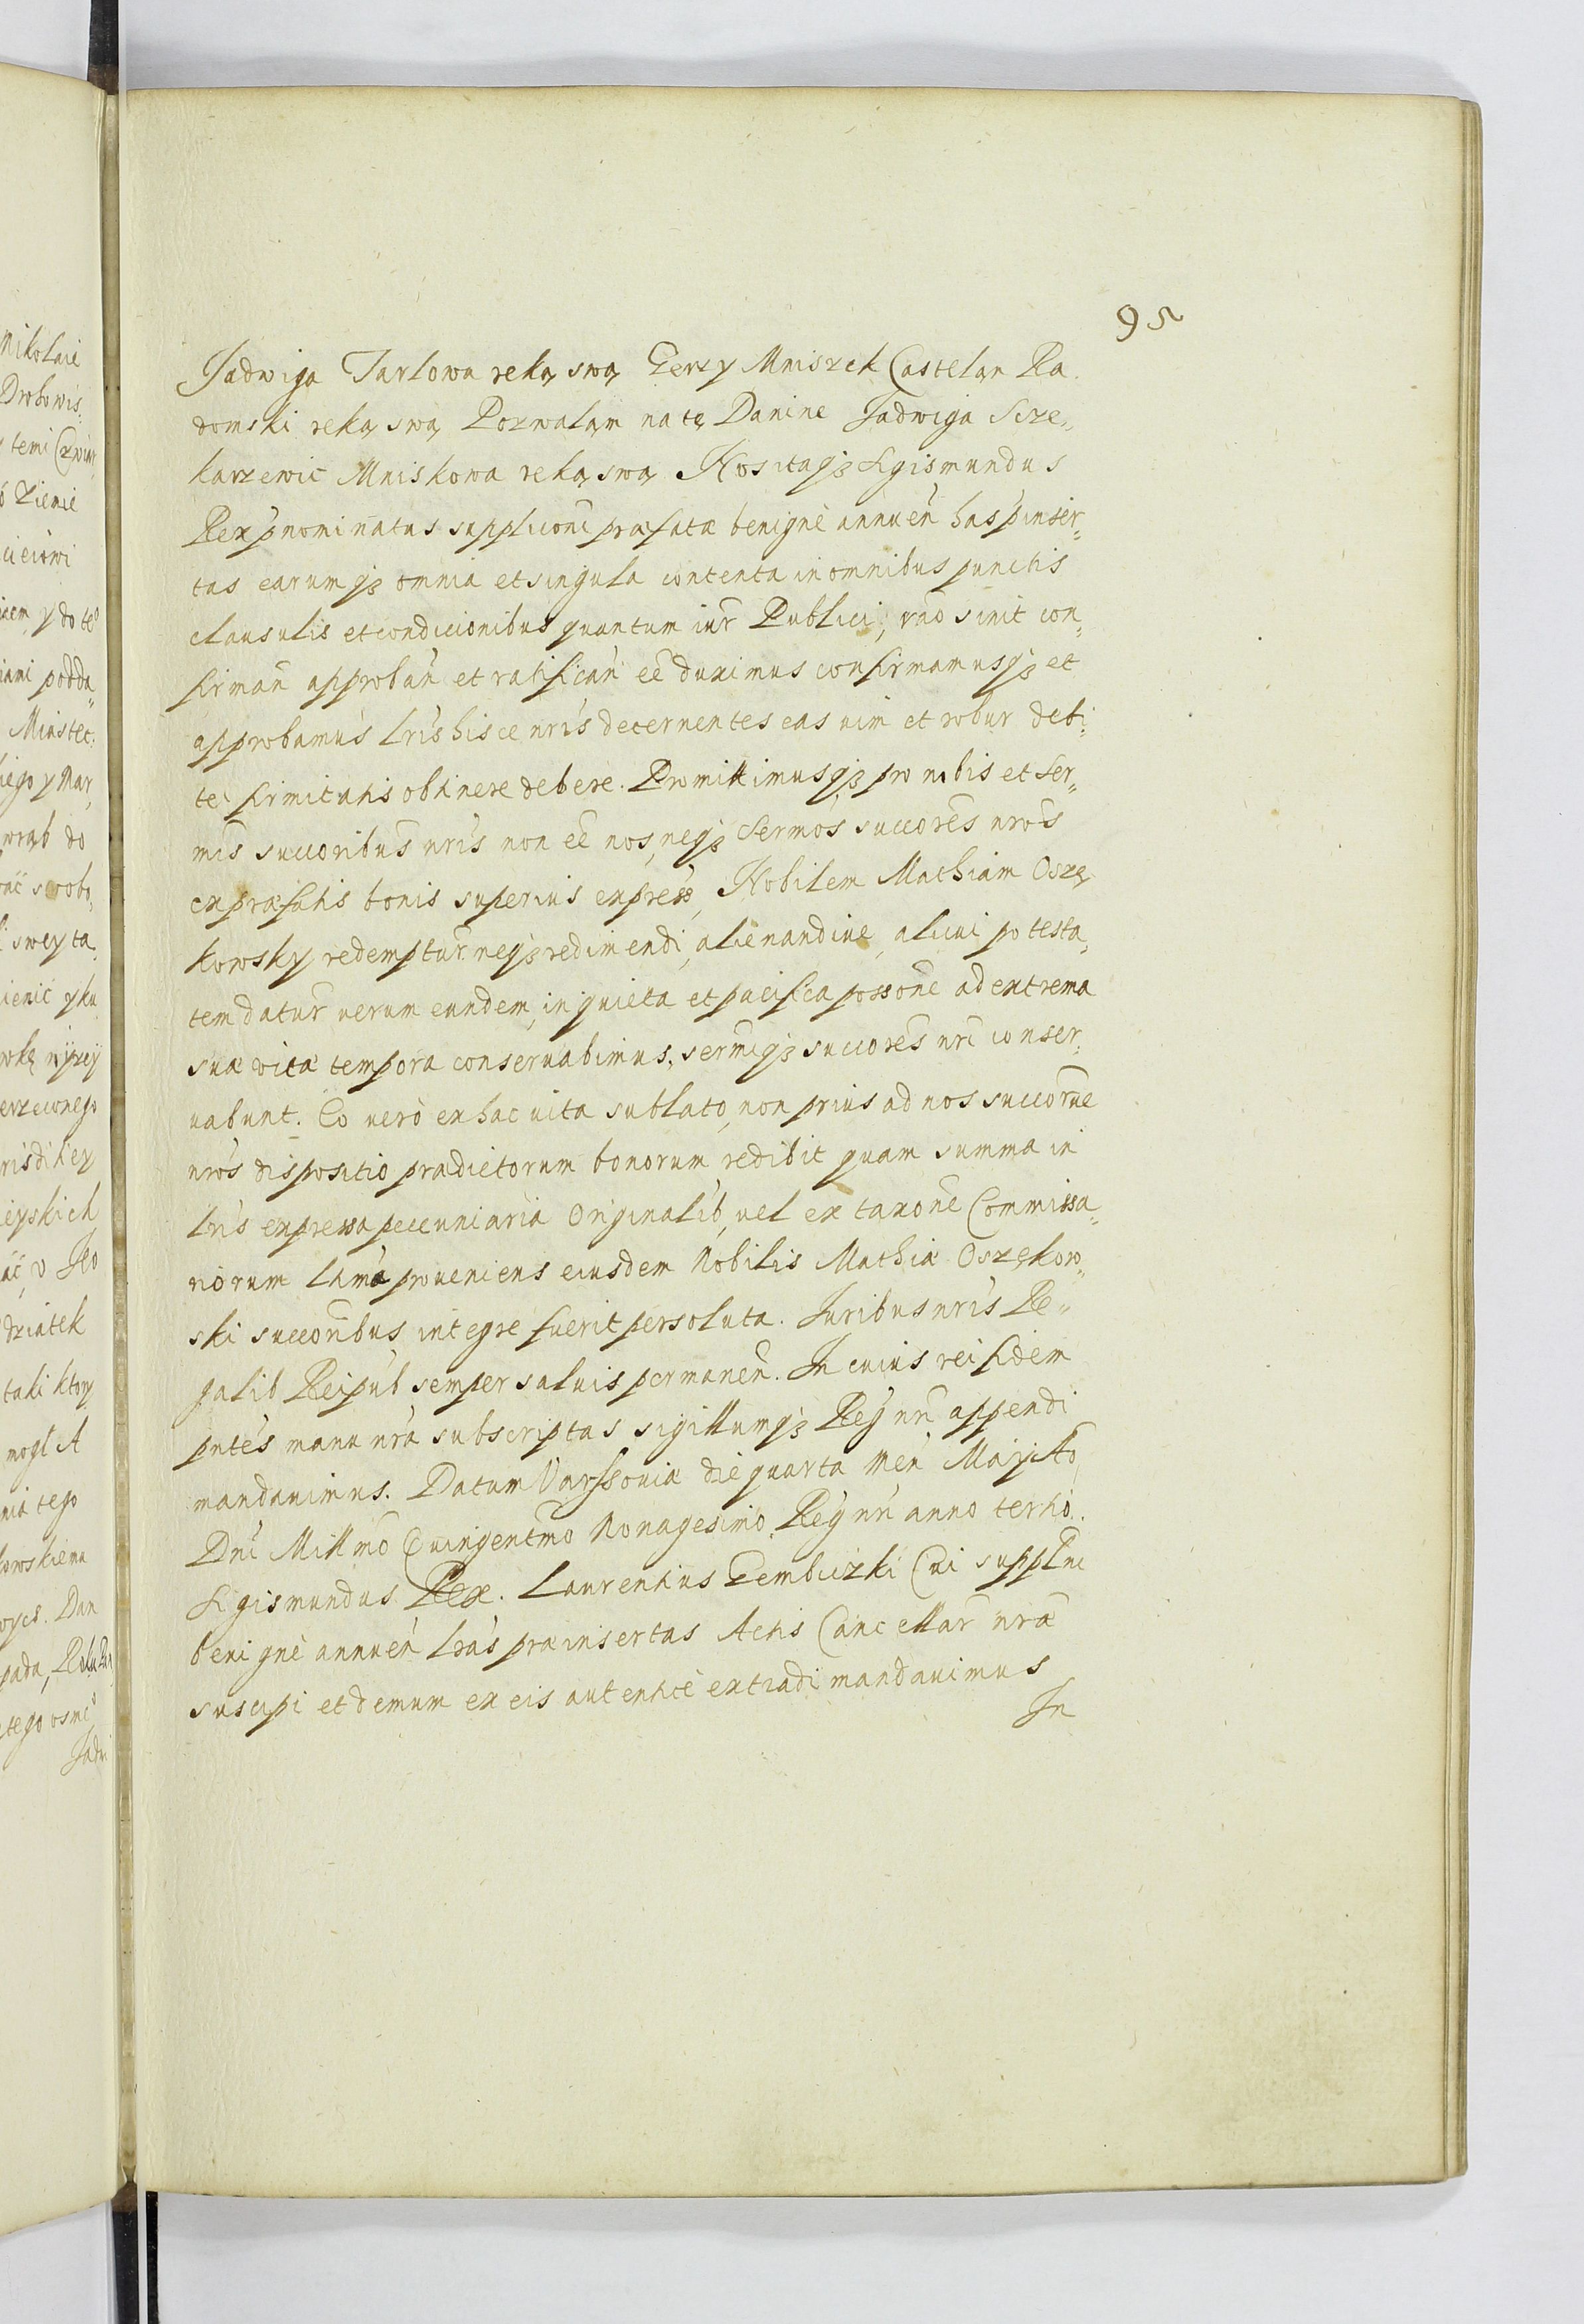 95
Jadwiga Tarlowa reką swą Jerzy Mniszek Castelan Ra
domski reką swą Pozwalam na tę Daninę Jadwiga Scze„
karzewic Mniskowa reką swą Nos itaq3 Sigismundus
Rex pnominatus suppliconi præfatæ benignè annuen̄ has pinser„
tas earumq3 omnia et singula contenta in omnibus punctis
clausulis et condicionibus quantum iur̄ Publici, rao sinit con„
firman̄ approban̄ et ratifican̄ eē duximus confirmamusq3 et
approbamus Lris hisce nris decernentes eas vim et robur debi„
te firmitatis obtinere debere. Promittimusq3 pro nobis et Ser„
mis succoribus nris non eē nos, neq3 Sermos succores nros
ex præfatis bonis superius express, Nobilem Mathiam Oszę
kowsky redemptur̄ neq3 redimendi, alienandive, alicui potesta„
tem datur̄ verum eundem, in quieta et pacifica possone ad extrema
suæ vitæ tempora conservabimus, sermiq3 succores nri conser„
vabunt. Eo verò ex hac vita sublato, non prius ad nos succorve
nros dispositio prædictorum bonorum redibit quam summa in
Lris expressa pecuniaria Originalib, vel ex taxone Commissa„
riorum Lama proveniens eiusdem Nobilis Mathiæ Oszękow„
ski succoribus integre fuerit persoluta. Juribus nris Re„
galib Reipub semper salvis permanen̄. In cuius rei fidem
pntes manu nra subscriptas sigillumq3 Regn nri appendi
mandavimus. Datum Varssoviæ die quarta Men Maji Ao
Dni Millmo Quingentmo Nonagesimo. Regn nri anno tertio.
Sigismundus Rex. Laurentius Gembiczki Cui supplni
benignè annuen̄ Lras præinsertas Actis Cancellar̄ nræ
suscipi et demum ex eis autenticè extradi mandavimus
In